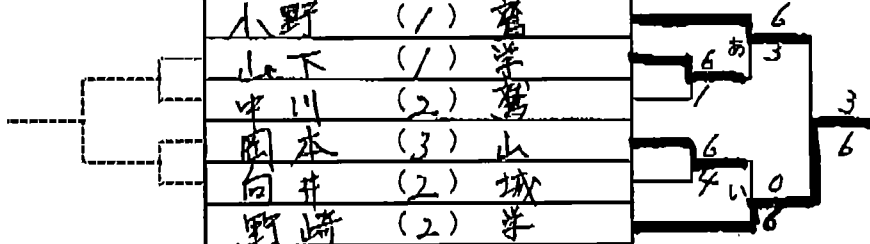 小野 (1) 鴬
山下 (1) 学
中川 (2) 鴬
岡本 (3) 山
向井 (2) 城
野崎 (2) 学
6
あ 3
6
1
3
6
6
4
い 0
6